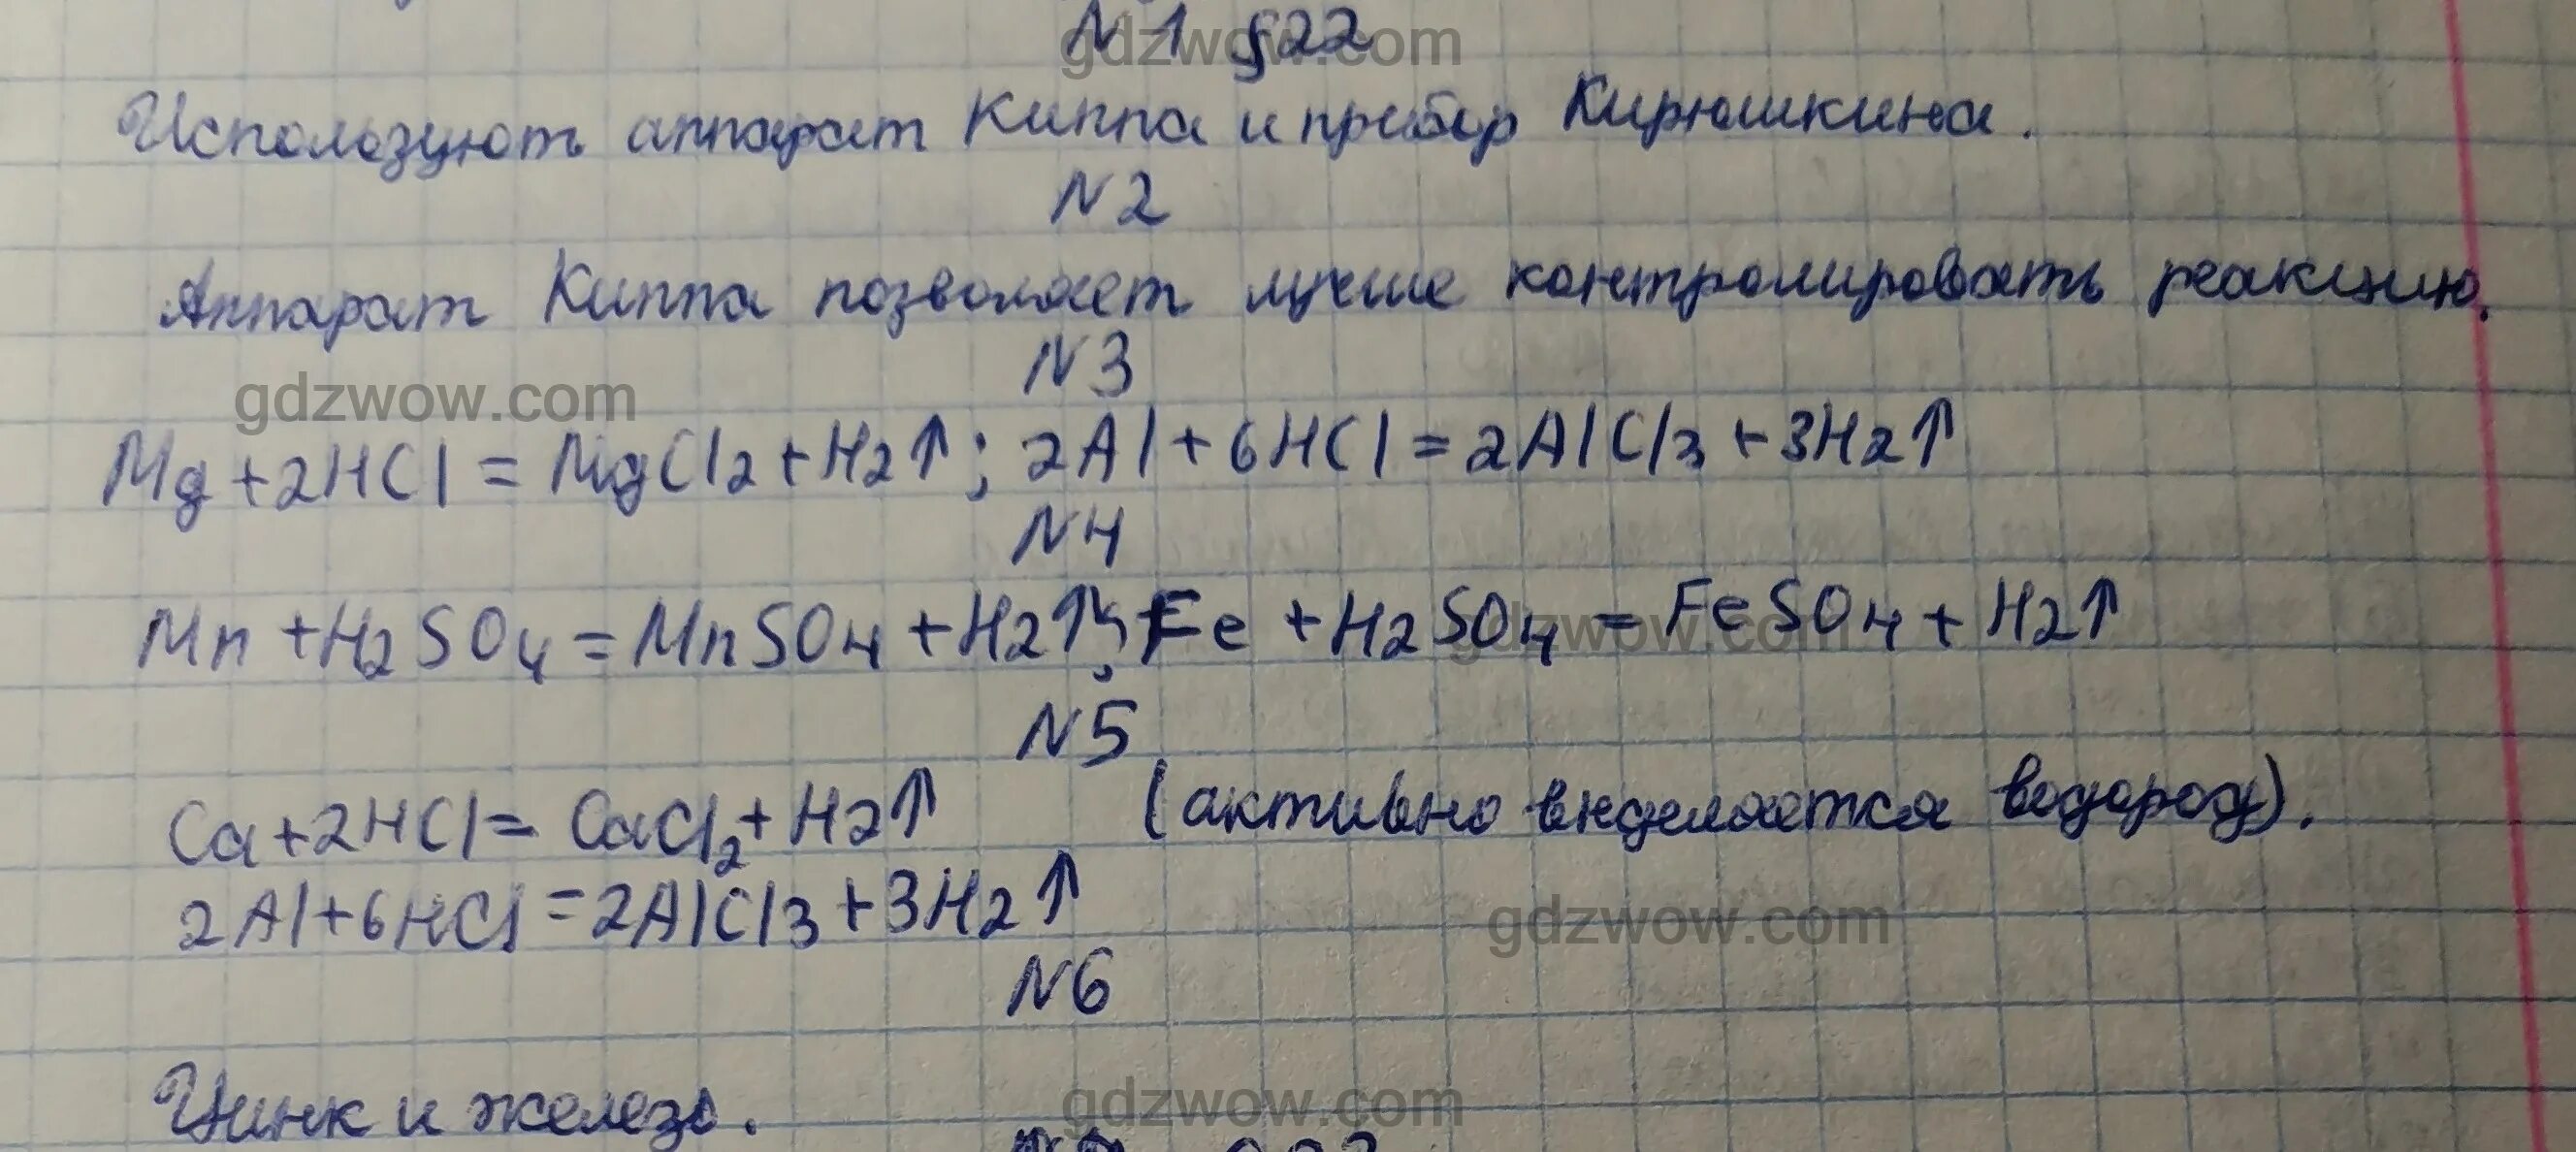 N1 §22
Используют аппарат Киппа и прибор Кирюшкина.
N2
Аппарат Киппа позволяет лучше контролировать реакцию.
N3
gdzwow.com
Mg+2HCl=MgCl2+H2↑; 2Al+6HCl=2AlCl3+3H2↑
N4
Mn+H2SO4=MnSO4+H2↑; Fe+H2SO4=FeSO4+H2↑
gdzwow.com
N5
Ca+2HCl=CaCl2+H2↑ (активно выделяется водород).
2Al+6HCl=2AlCl3+3H2↑
gdzwow.com
N6
Цинк и железо.
gdzwow.com